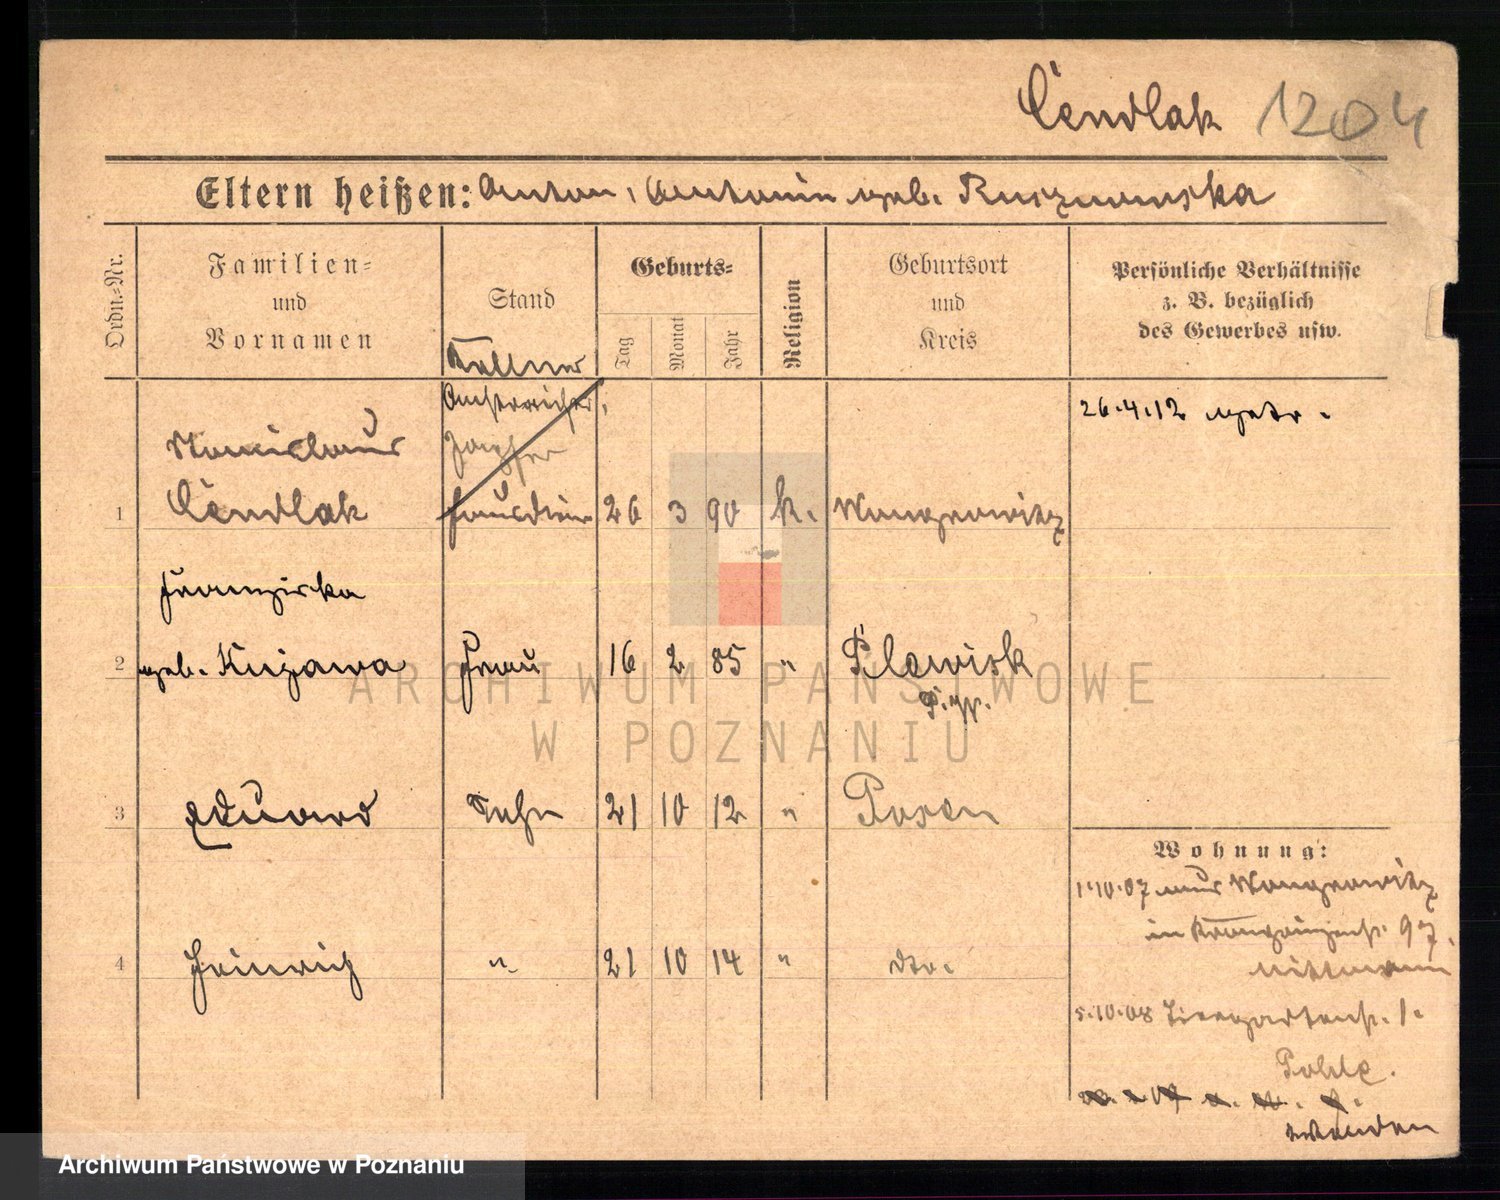 Cendlak 1204
Eltern heißen: Anton, Antonin geb. Rusznowska
Ordn.-Nr.
Familien-
und
Vornamen
Stand
Geburts-
Tag
Monat
Jahr
Religion
Geburtsort
und
Kreis
Persönliche Verhältnisse
z. B. bezüglich
des Gewerbes usw.
Kellner
Anstreicher,
26.4.12 getr.
Stanislaus
1 Cendlak Hausdiener 26 3 90 k. Wongrowitz
Franziska
2 geb. Kujawa Frau 16 2 85 " Plewisk
P. W.
3 Eduard Sohn 21 10 12 " Posen
Wohnung:
1.10.07 aus Wongrowitz
in Kronprinzenstr. 97.
4 Heinrich " 21 10 14 " dto.
Mittmann
5.10.08 Tiergartenstr. 1.
Pohle.
ARCHIWUM PAŃSTWOWE
W POZNANIU
Archiwum Państwowe w Poznaniu